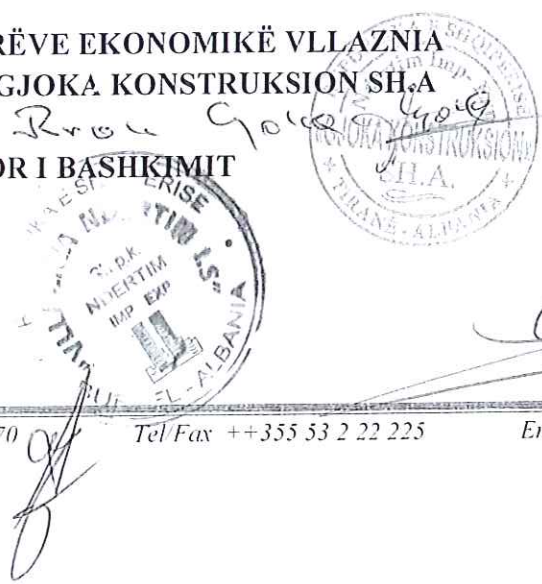 RËVE EKONOMIKË VLLAZNIA
GJOKA KONSTRUKSION SH.A
Rrok Gjoka
OR I BASHKIMIT
GJOKA KONSTRUKSION
SH.A.
TIRANË - ALBANIA
NDERTIM
IMP EXP
ALBANIA
70 Tel/Fax ++355 53 2 22 225 En